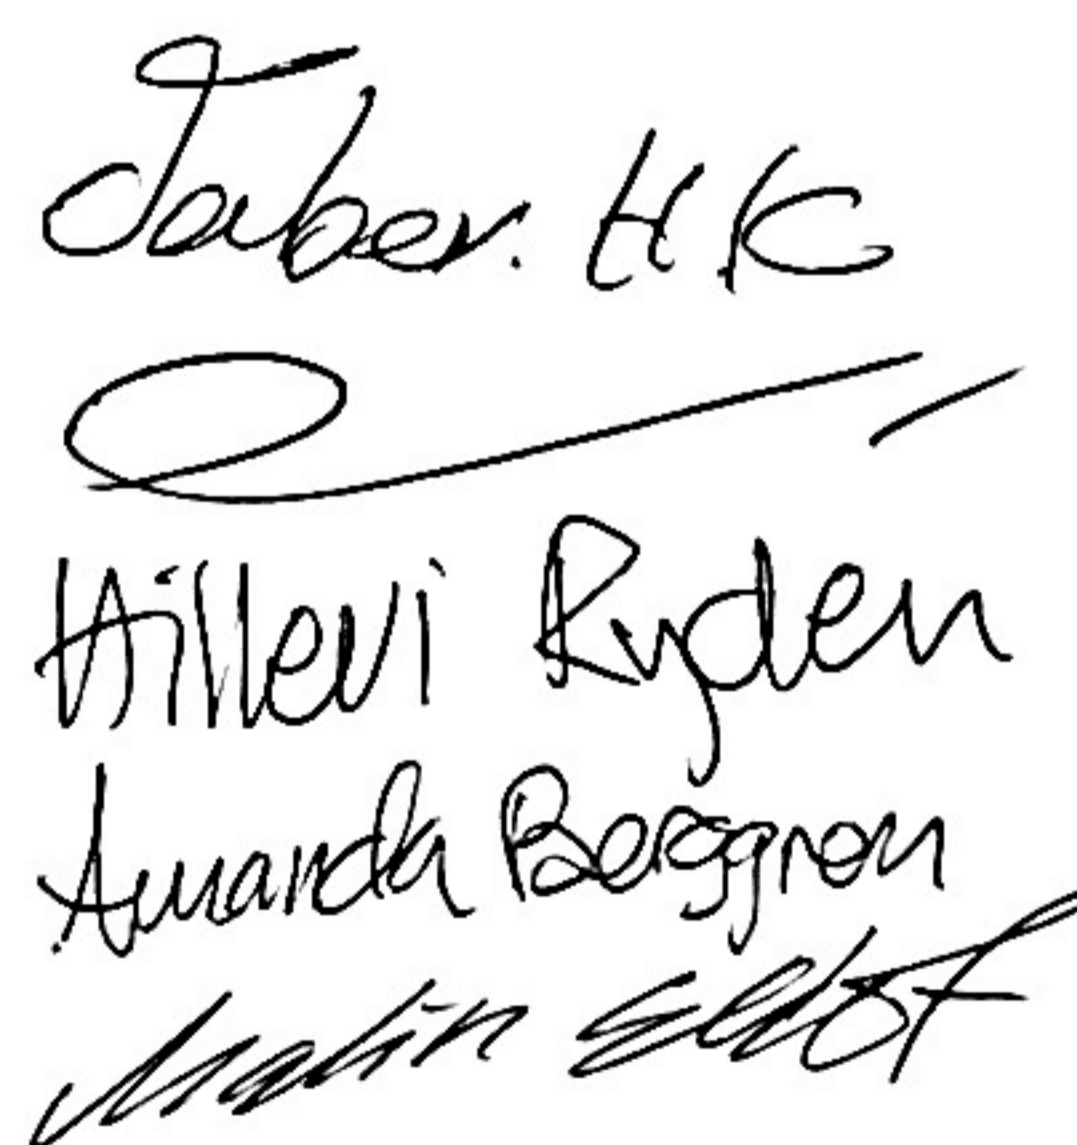 Jaber. H.K
Hillevi Ryden
Amanda Berggren
Malin